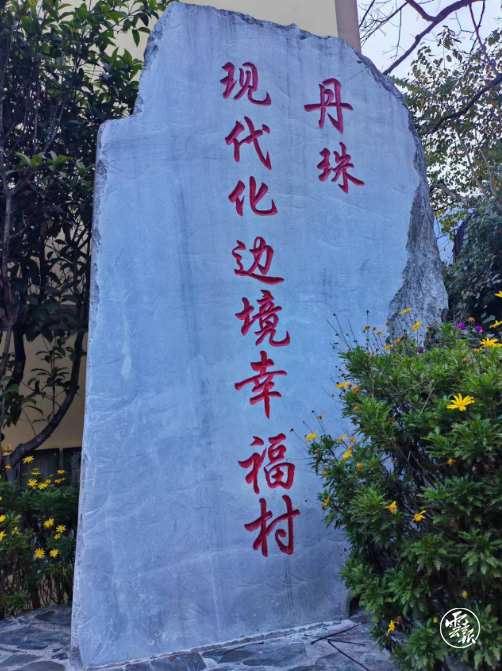 丹珠
现代化边境幸福村
雲報